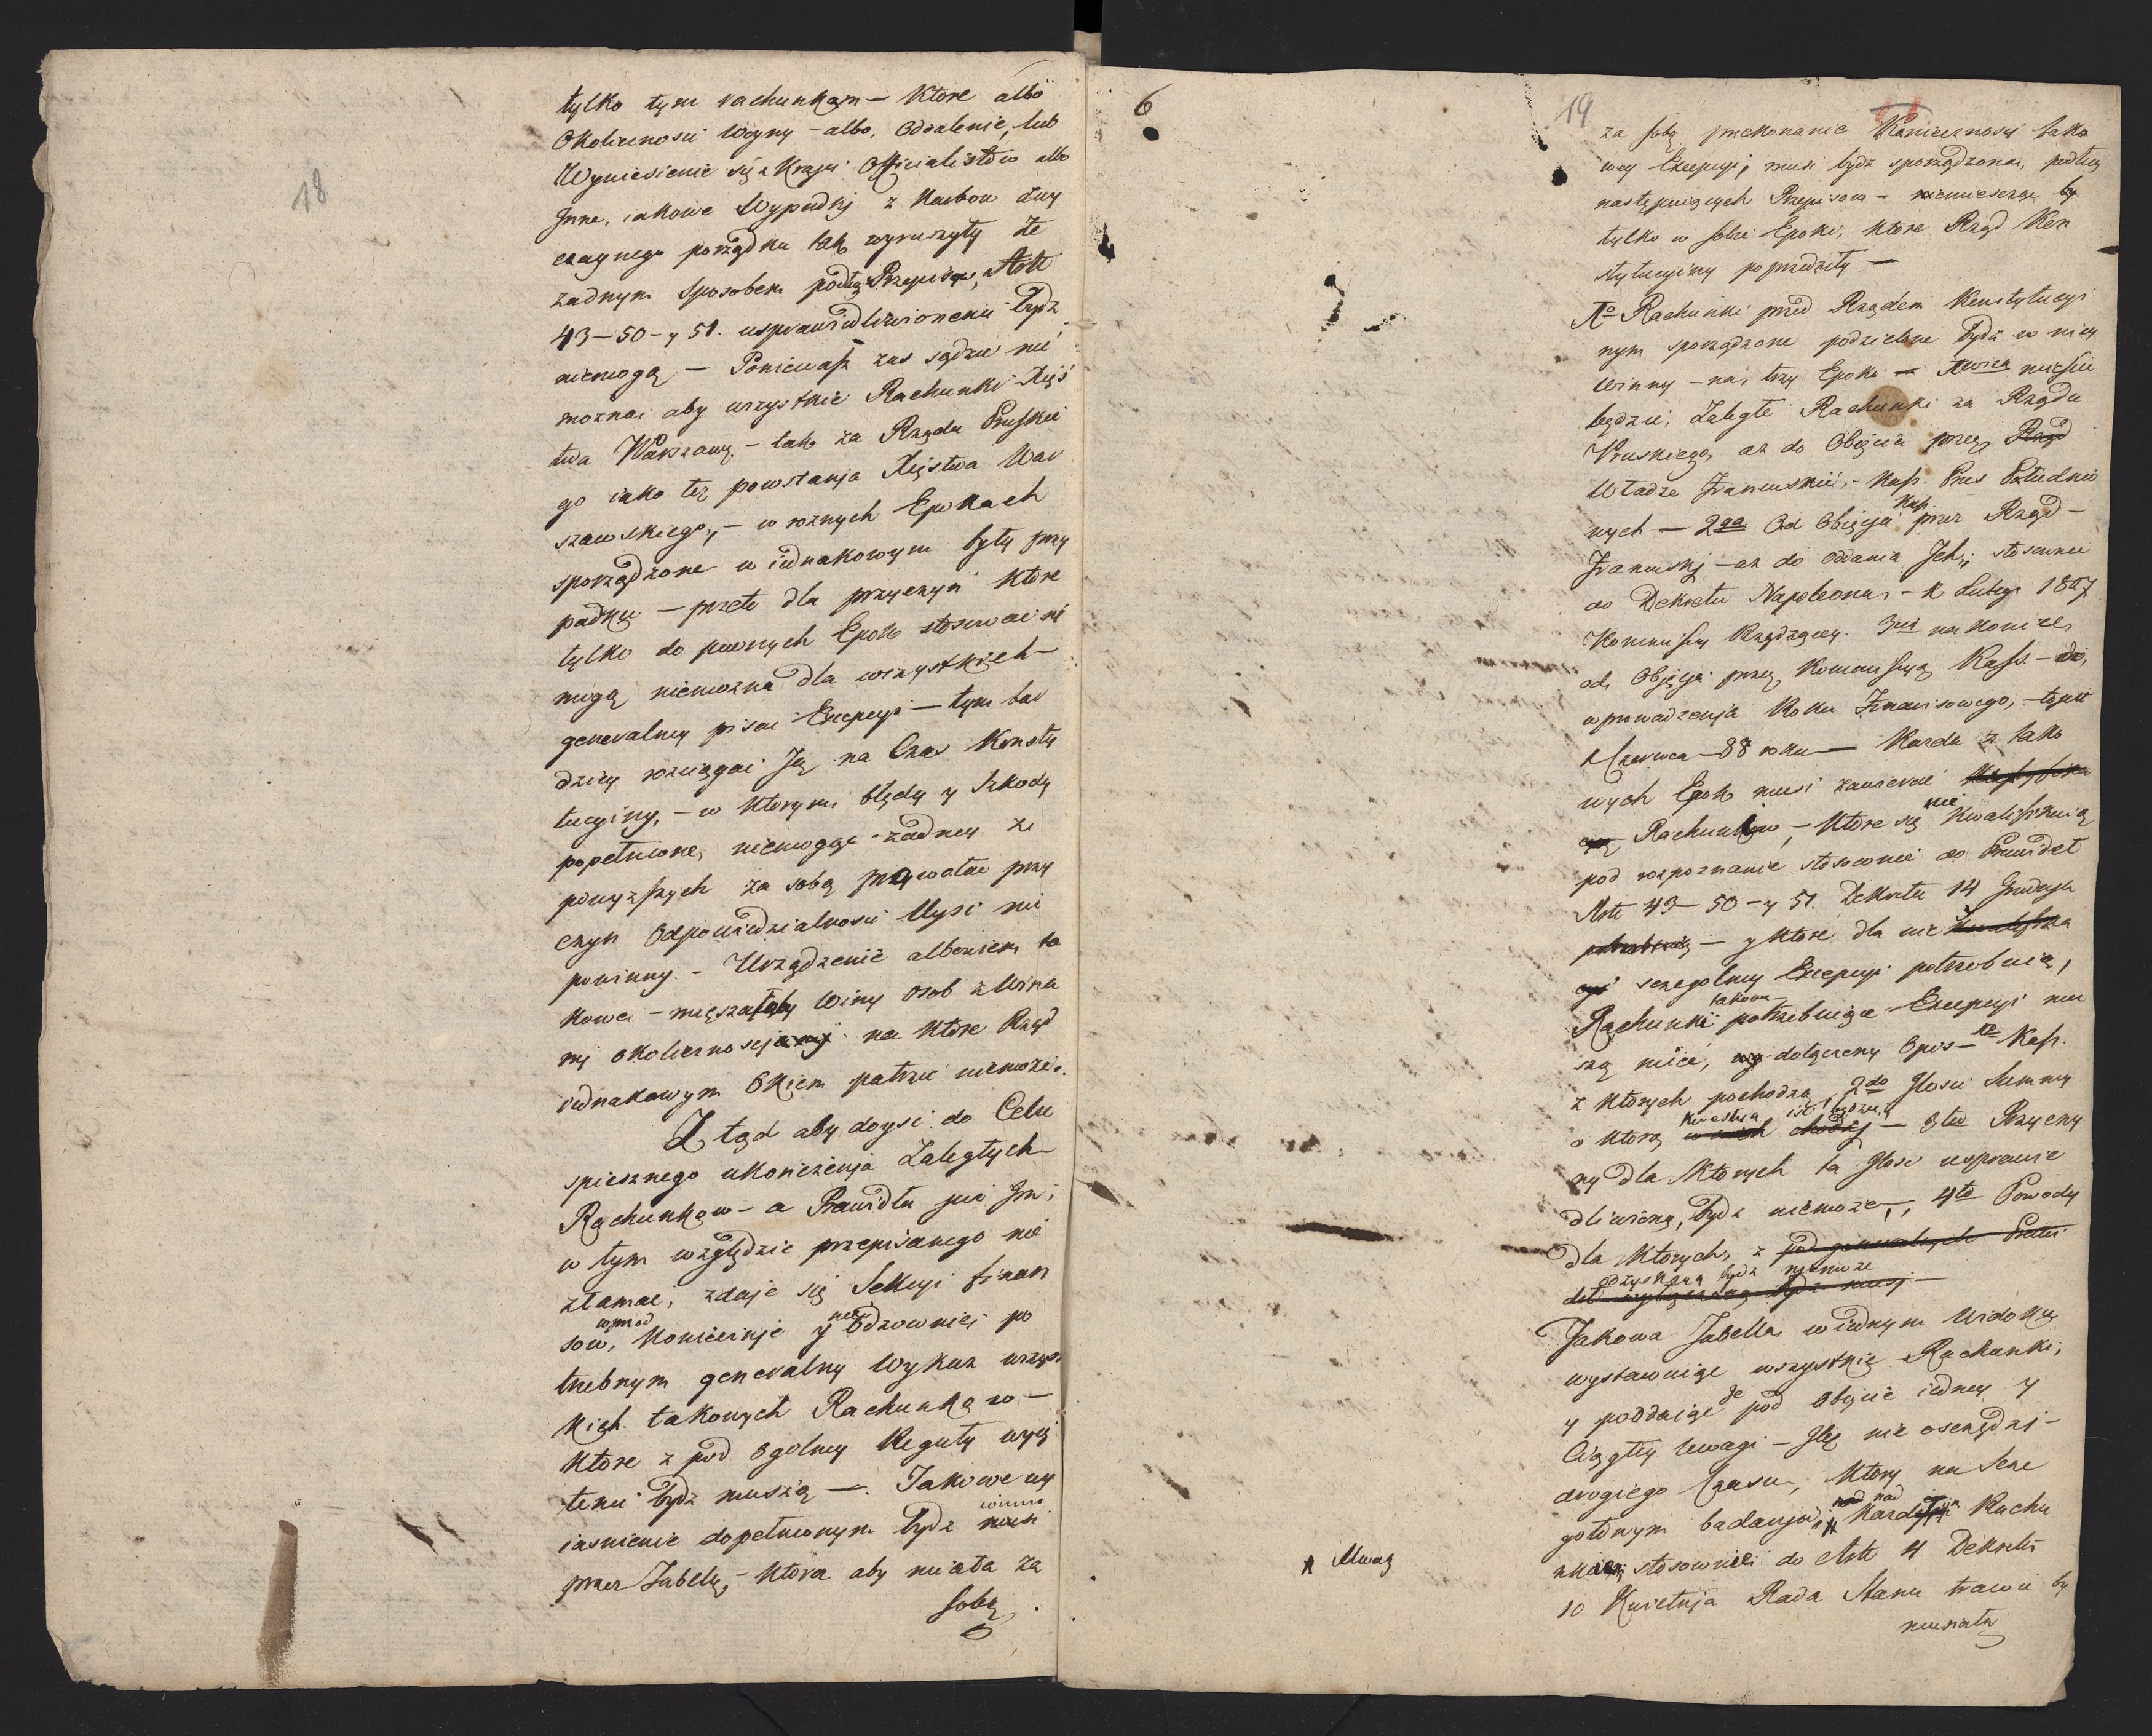 18
tylko tym rachunkom — Ktore albo
Okolicznosci Woyny — albo, Oddalenie, lub
Wyniesienie się z Kraju Officialistow albo
Inne, iakowe Wypadki z Karbow zwy
czaynego porządku tak wyruszyły że
żadnym Sposobem podług Przepisow, Artt
43 — 50 — y 51. usprawiedliwionemi bydz
niemogą — Ponieważ zas sądzić nie
można aby wszystkie Rachunki Xięs
twa Warszaw, — tak za Rządu Pruskie
go iako też powstania Xięstwa War
szawskiego, — w roznych Epokach
sporządzone w iednakowym były przy
padku — przeto dla przyczyn Ktore
tylko do pewnych Epok stosowac się
mogą niemozna dla wszystkich
generalney pisac Excepcyi — tym bar
dziey rozciągać Ją na Czas Konsty
tucyiny, — w Ktorym, błędy y Szkody
popełnione, niemogąc żadney z
powyzszych za sobą przywołac przy
czyn Odpowiedzialnosci Uysc nie
powinny. — Urządzenie albowiem ta
kowe — mięszałoby Winy osob z Wina
mi okolicznosci na Ktore Rząd
iednakowym Okiem patrzec niemoże.
Z tąd aby doysc do Celu
spiesznego ukończenia Zaległych
Rachunkow — a Prawidła juz
w tym względzie przepisanego nie
złamać, zdaje się Sekcyi finan
wprod nie
sow, Koniecznie y Odzownie po
trzebnym generalny Wykaz wszyst
kich takowych Rachunkow —
Ktore z pod Ogolney Reguły wyię
temi bydz muszą —. Takowe wy
winno
iasnienie dopełnionym bydz musi
przez Tabellę, — Ktora aby miała za
sobą.
6
19
za sobą przekonanie Konieczności tako
wey Excepcyi, musi bydz sporządzona, podług
następuiących Przepisow — niemieszcząc by
tylko w sobie Epoki, Ktore Rząd Kon
stytucyiny poprzedziły —
Rachunki przed Rządem Konstytucyi
nym sporządzone podzielone bydź w niey
winny — na, trzy Epoki — 1wsza mieścić
będzie, Zaległe Rachunki za Rządu
Pruskiego, aż do Objęcia przez Rząd
Władze Francuskie, — Kass. Prus Południo
Kass
wych — 2ga Od Objęcia przez Rząd —
Francuski — aż do oddania Ich, stosownie
do Dekretu Napoleona, — Lutego 1807
Kommissyi Rządzącey. 3cia nakoniec,
od Objęcia przez Kommissyą Kass. — do,
wprowadzenia Roku Finansowego, — to jest
1 Czerwca — 88 roku — Kazda z tako
wych Epok musi zawierać
nie
Rachunkow, — Ktore się Kwalifikuią
pod rozpoznanie stosownie do Prawideł
Artt 43 — 50 — y 51. Dekretu 14 Grudnia
— y Ktore dla nie
szczegolney Excepcyi potrzebuią,
takowe
Rachunki potrzebuiące Excepcyi mu
szą mieć, dołączony Opis — Kass.
z Ktorych pochodzą, 2do Ilosci Summy
Kwestya iść będzie
o Ktorą w nich chodzi — 3tio Przyczy
ny dla Ktorych ta Ilosc usprawie
dliwioną, bydz niemoże, 4to Powody
dla Ktorych, z pod generalnych Prawi
odzyskaną bydz niemoze
deł bydz musi —
Takowa Tabella w iednym Widoku
wystawuiąc wszystkie Rachunki,
Je
y poddaiąc pod Objęcie iedney y
Ciągłey Uwagi — Ileż nie oszczędzi —
drogiego Czasu, Ktory na Szcze
nad
gołowym badaniu, x Kazdym Rachu
nkiem stosownie do Artt 4 Dekretu
10 Kwietnia Rada Stanu trawić by
musiała
x Uwag